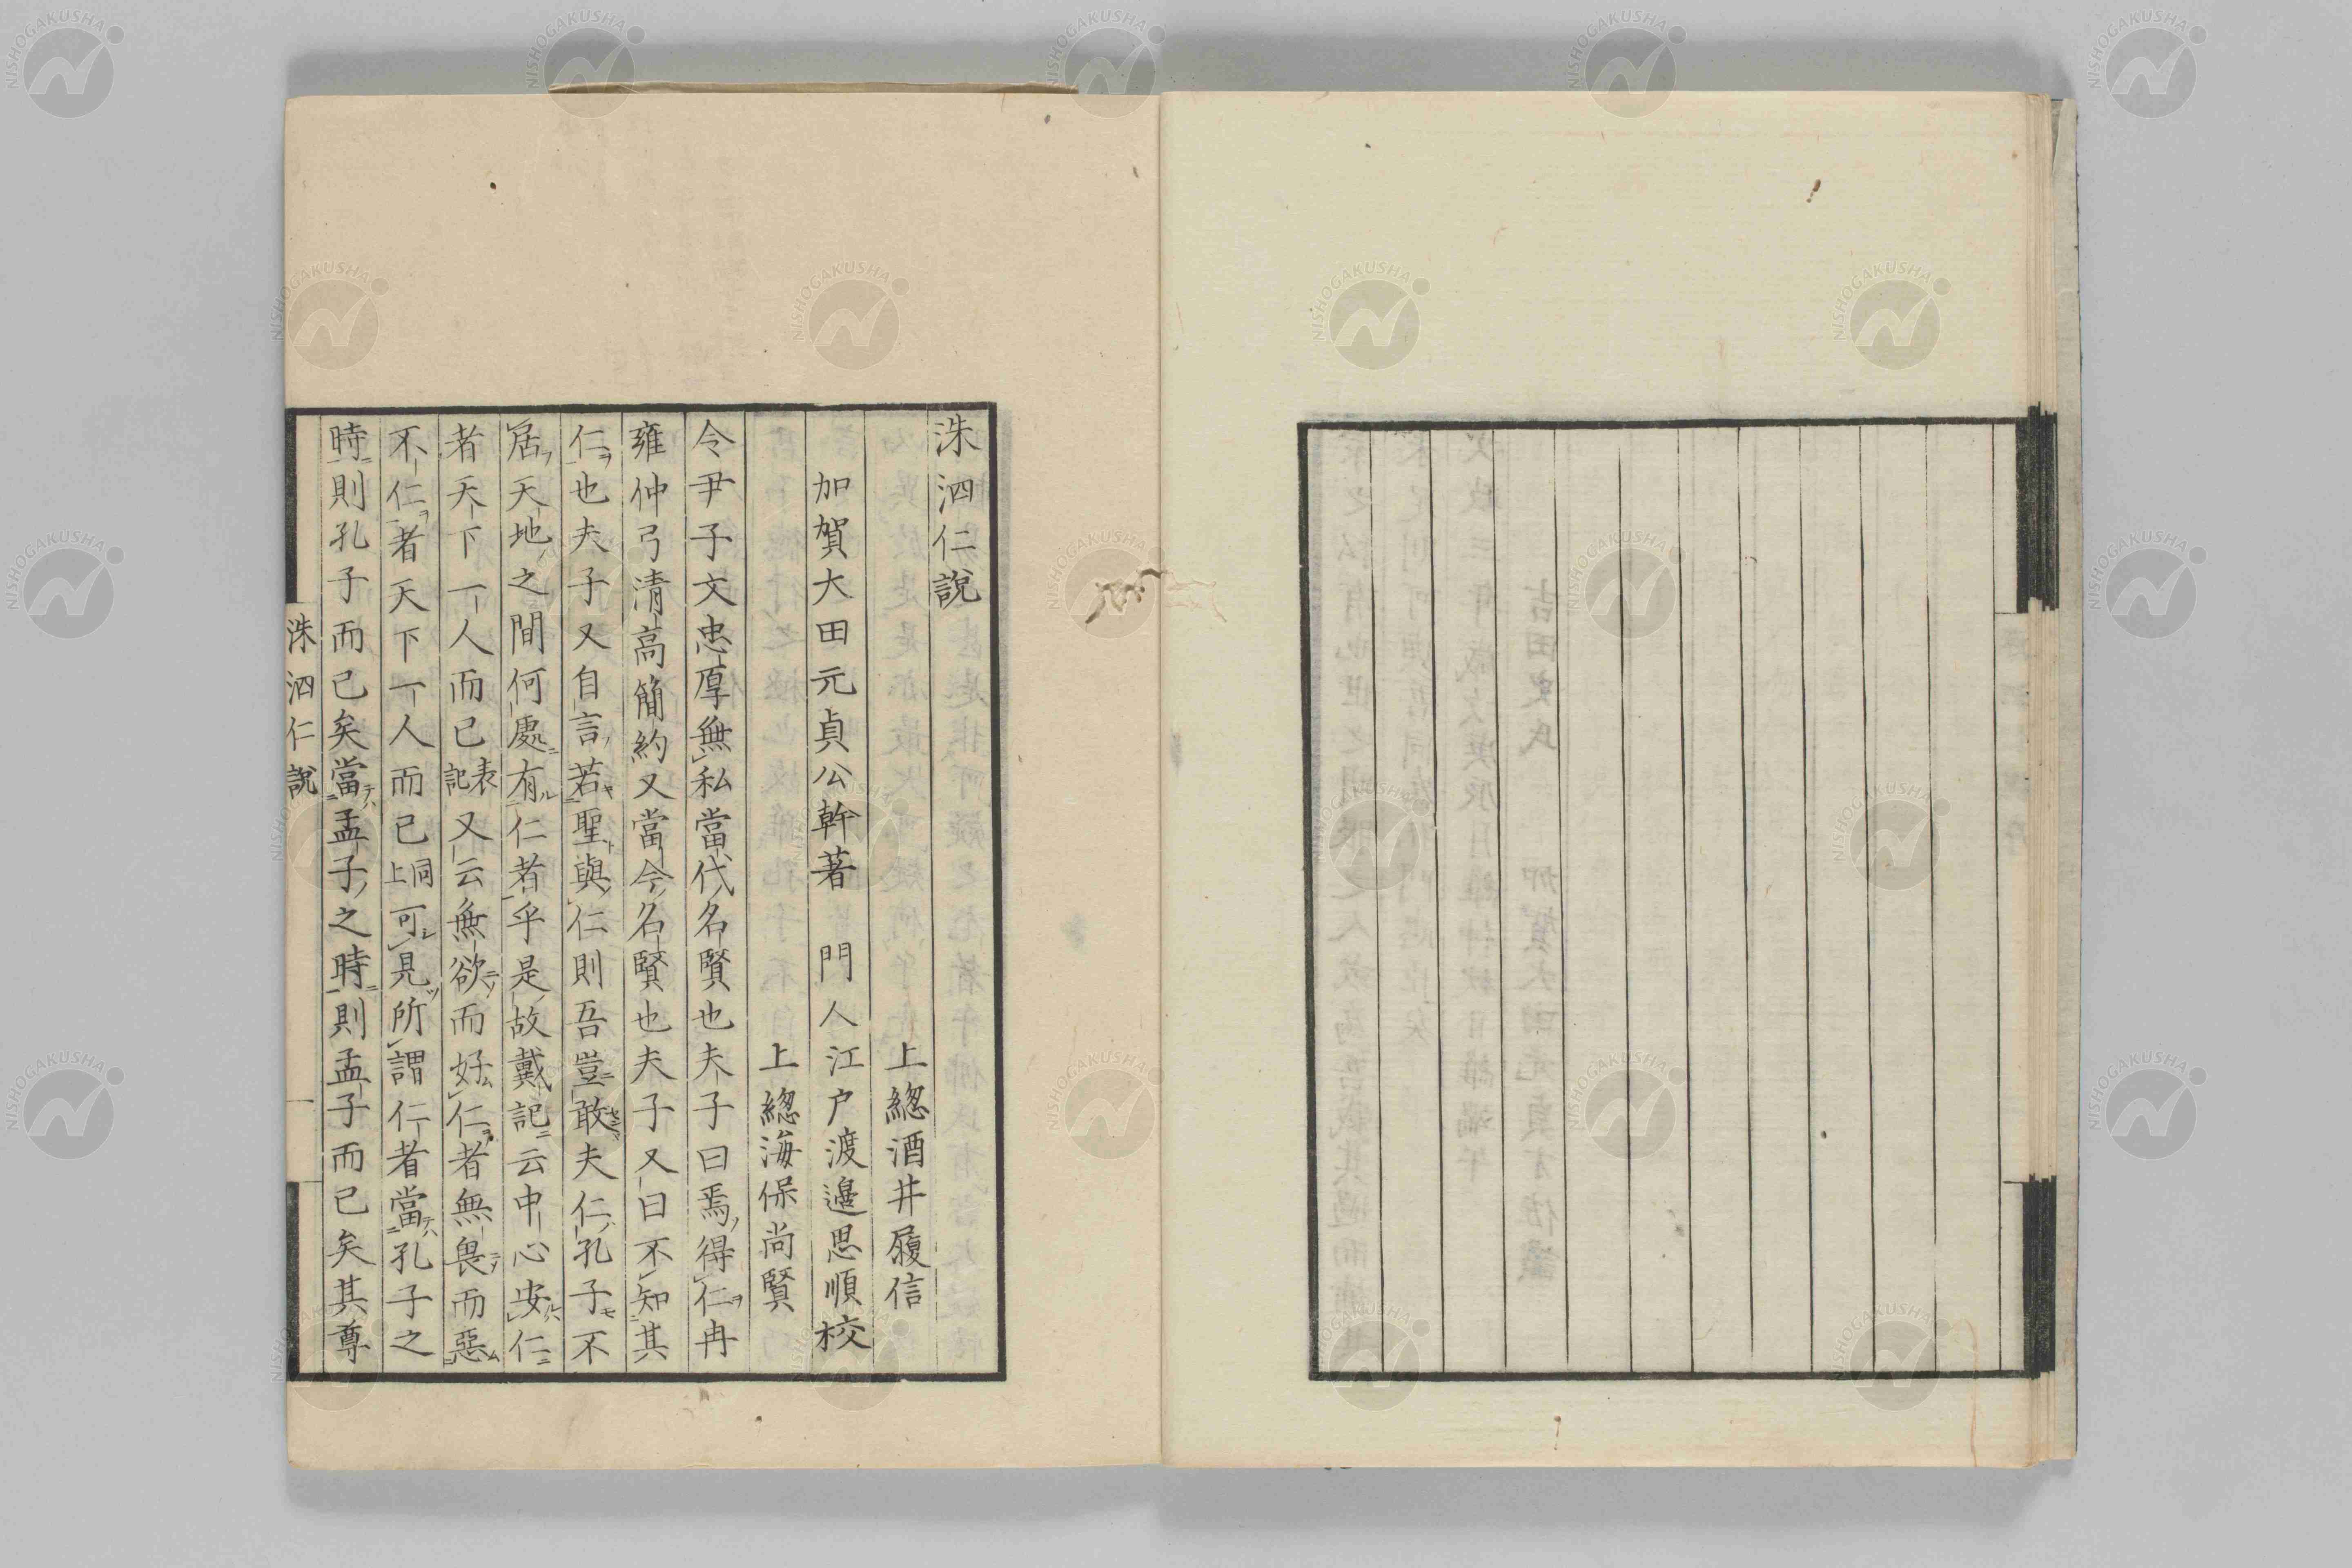 洙泗仁說
上緫酒井履信
加賀大田元貞公幹著　門人江户渡邉思順校
上緫海保尚賢
令尹子文忠厚無私當代名賢也夫子曰焉得仁冉
雍仲弓清高簡約又當今名賢也夫子又曰不知其
仁也夫子又自言若聖與仁則吾豈敢夫仁孔子不
居天地之間何處有仁者乎是故戴記云中心安仁
者天下一人而已表記又云無欲而好仁者無畏而惡
不仁者天下一人而已同上可見所謂仁者當孔子之
時則孔子而已矣當孟子之時則孟子而已矣其尊
洙泗仁說
一
NISHOGAKUSHA